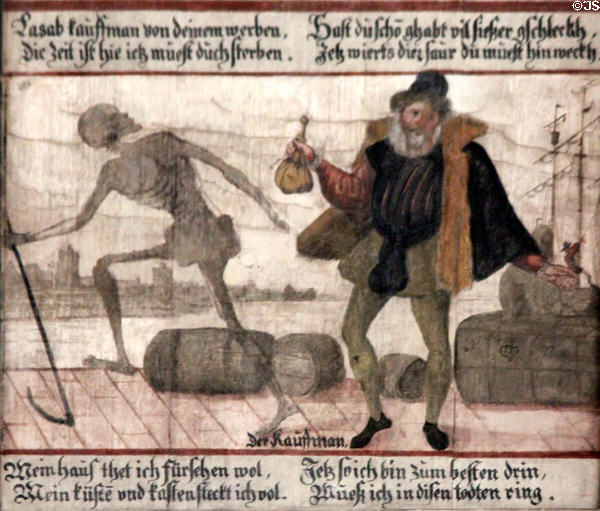 Lasab kauffman von deinem werben,
Die Zeit ist hie ietz muest duch sterben.
Hast du schö ghabt vil siesser gschleckh,
Jetz wierts diez saur du muest hinweckh.
Der Kauffman.
Mein haus thet ich fürsehen wol,
Mein küste vnd kasten steckt ich vol.
Jetz so ich bin zum besten drin,
Mueß ich in disen todten ring.
© JS